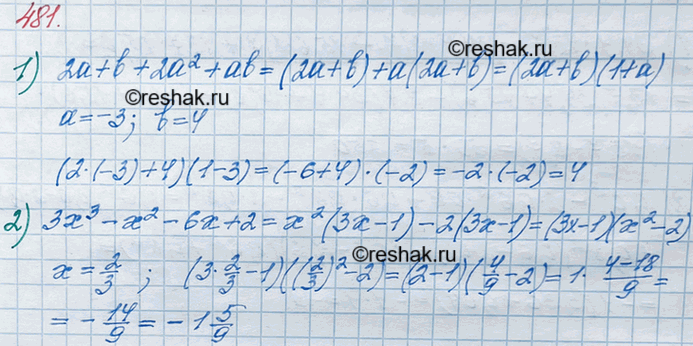 481.
©reshak.ru
1) 2a+b+2a²+ab=(2a+b)+a(2a+b)=(2a+b)(1+a)
©reshak.ru
a=-3; b=4
(2·(-3)+4)(1-3)=(-6+4)·(-2)=-2·(-2)=4
©reshak.ru
2) 3x³-x²-6x+2=x²(3x-1)-2(3x-1)=(3x-1)(x²-2)
x=2/3; (3·2/3-1)((2/3)²-2)=(2-1)(4/9-2)=1·(4-18)/9=
=-14/9=-1 5/9